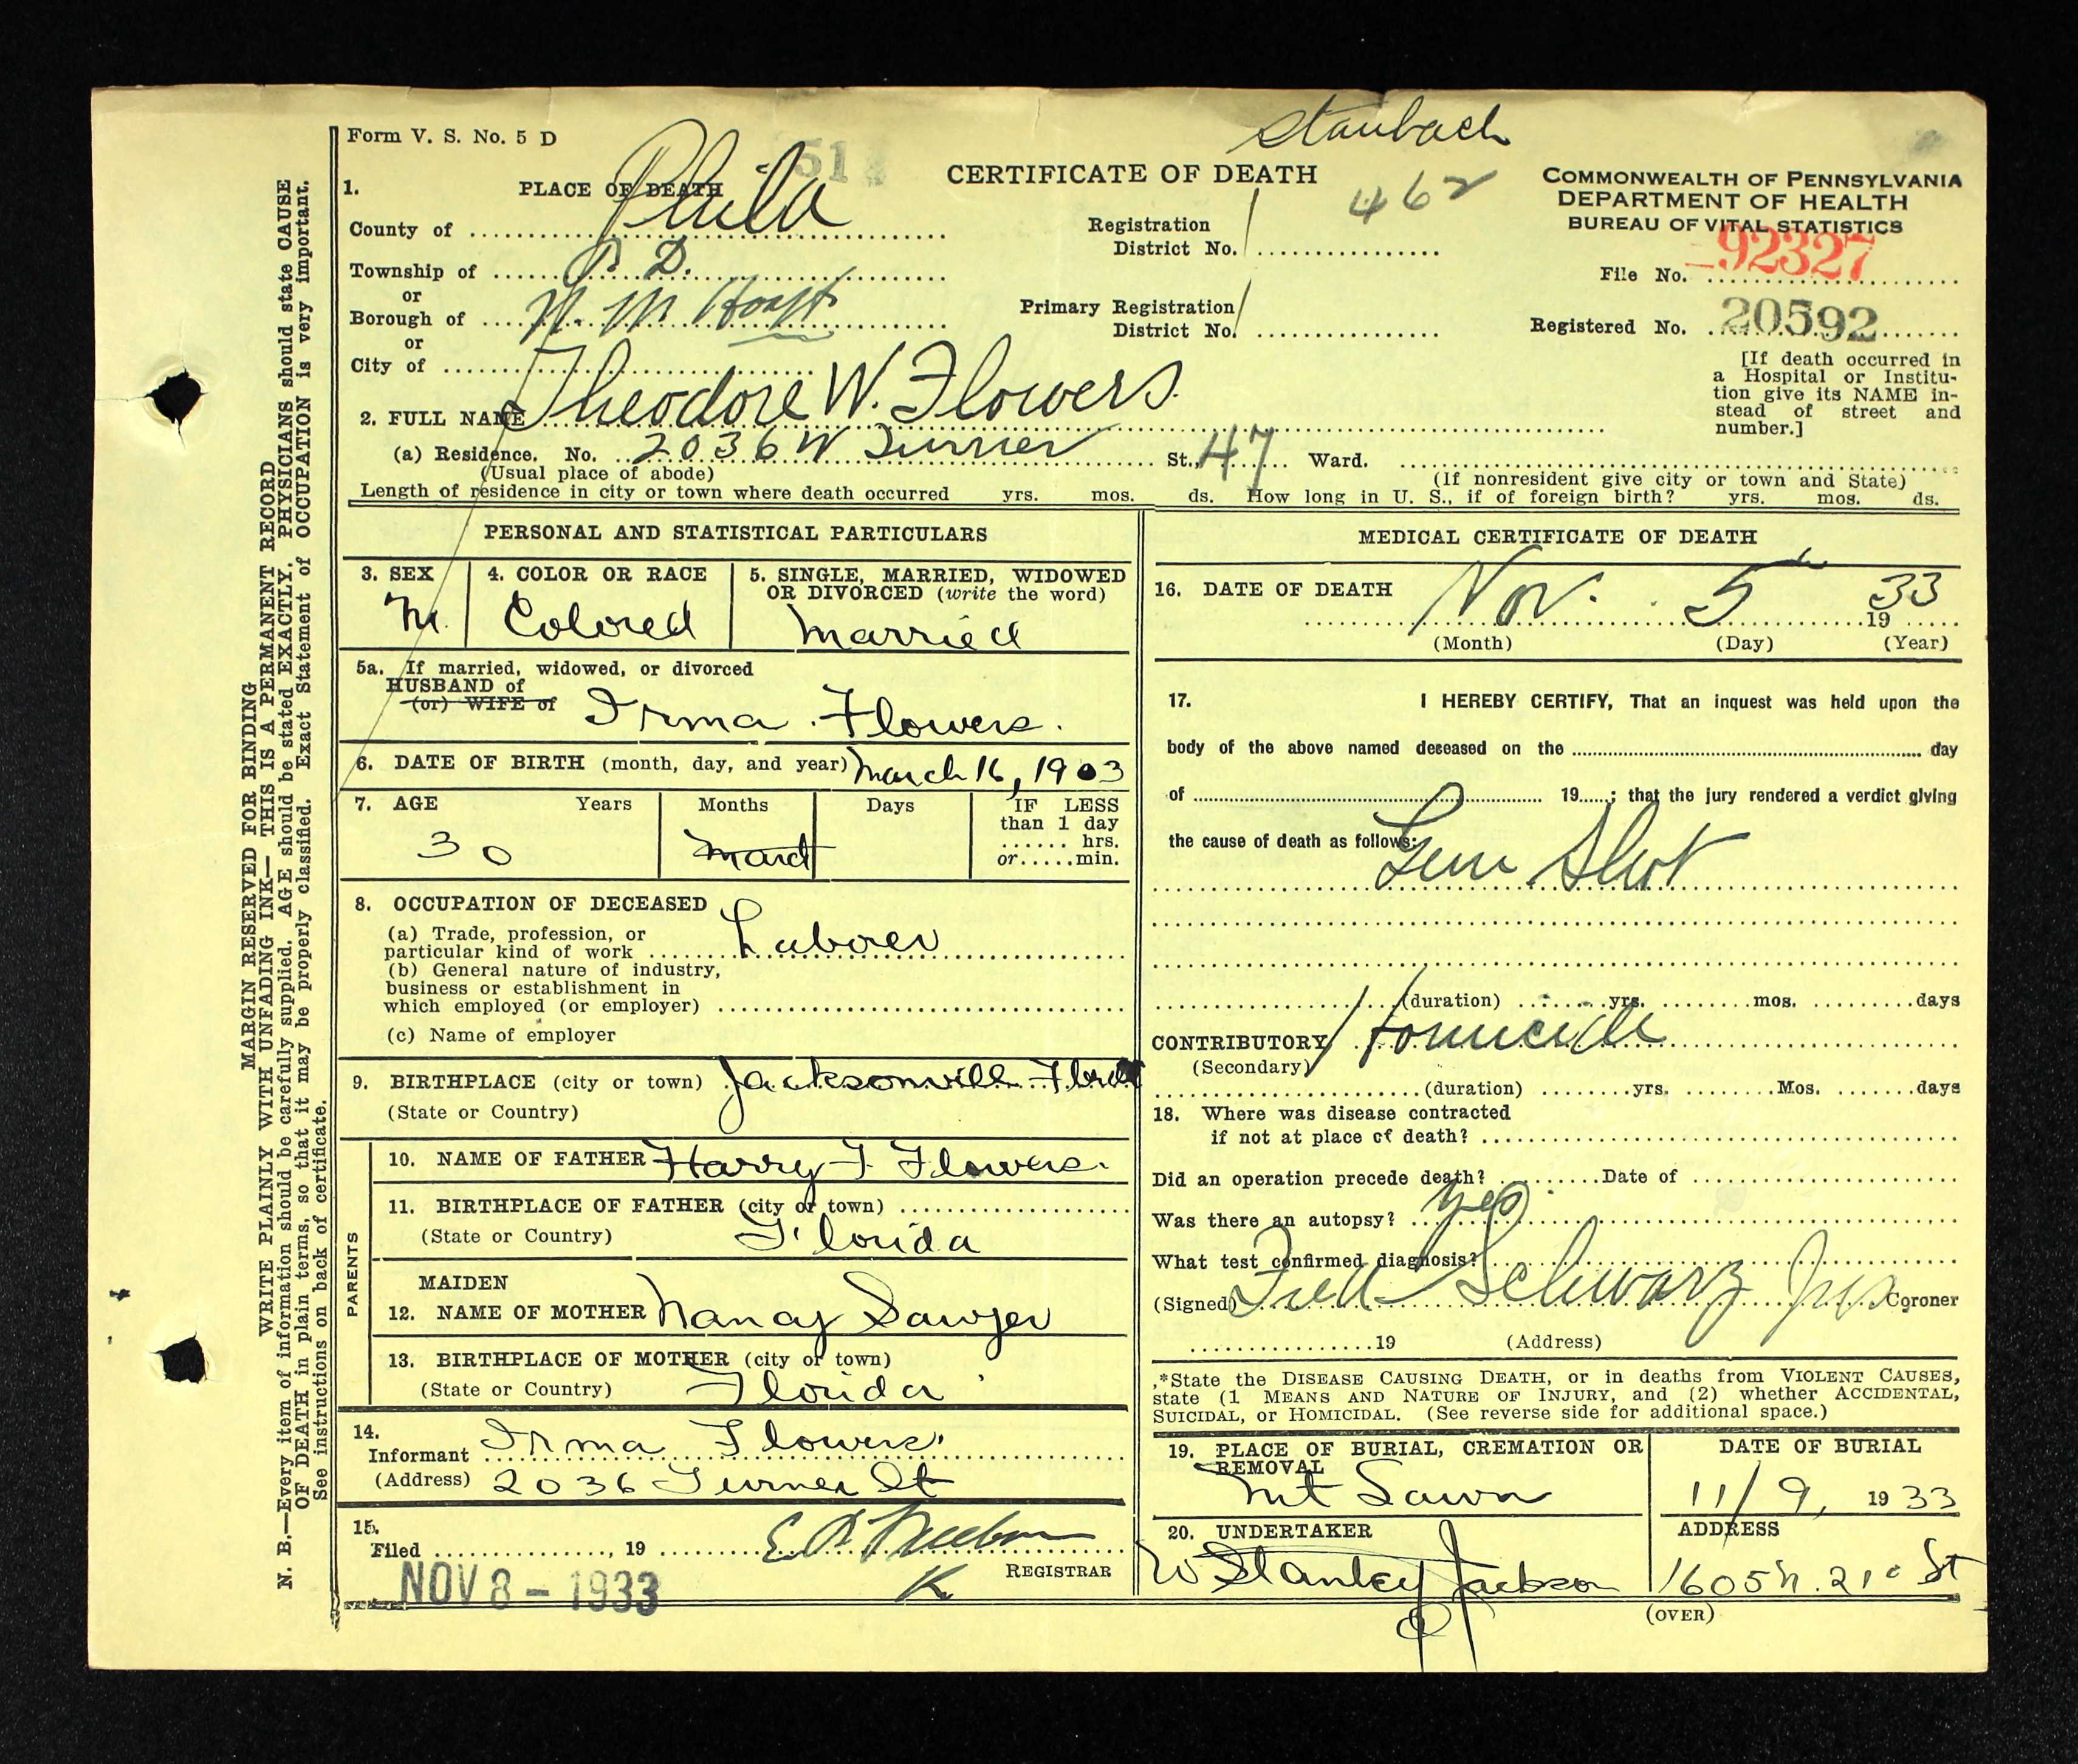 Staubach
Form V. S. No. 5 D
51
CERTIFICATE OF DEATH
462
COMMONWEALTH OF PENNSYLVANIA
DEPARTMENT OF HEALTH
BUREAU OF VITAL STATISTICS
File No. 92327
Registered No. 20592
[If death occurred in
a Hospital or Institu-
tion give its NAME in-
stead of street and
number.]
1. PLACE OF DEATH
County of Phila
Township of P. D.
or
Borough of
or
City of
Registration
District No.
Primary Registration
District No.
2. FULL NAME Theodore W. Flowers.
(a) Residence. No. 2036 W Turner St., 47 Ward.
(Usual place of abode) (If nonresident give city or town and State)
Length of residence in city or town where death occurred yrs. mos. ds. How long in U. S., if of foreign birth? yrs. mos. ds.
PERSONAL AND STATISTICAL PARTICULARS
3. SEX
M.
4. COLOR OR RACE
Colored
5. SINGLE, MARRIED, WIDOWED
OR DIVORCED (write the word)
Married
5a. If married, widowed, or divorced
HUSBAND of
(or) WIFE of
Irma Flowers.
6. DATE OF BIRTH (month, day, and year) March 16, 1903
7. AGE Years Months Days IF LESS
than 1 day
...... hrs.
or.....min.
30
8. OCCUPATION OF DECEASED
(a) Trade, profession, or
particular kind of work Laborer
(b) General nature of industry,
business or establishment in
which employed (or employer)
(c) Name of employer
9. BIRTHPLACE (city or town) Jacksonvill
(State or Country)
PARENTS
10. NAME OF FATHER Harry F. Flowers.
11. BIRTHPLACE OF FATHER (city or town)
(State or Country) Florida
MAIDEN
12. NAME OF MOTHER Nancy Sawyer
13. BIRTHPLACE OF MOTHER (city or town)
(State or Country) Florida
14.
Informant Irma Flowers.
(Address) 2036 Turner St
15.
Filed ..............., 19
NOV 8 - 1933
K. REGISTRAR
MEDICAL CERTIFICATE OF DEATH
16. DATE OF DEATH Nov. 5th 1933
(Month) (Day) (Year)
17. I HEREBY CERTIFY, That an inquest was held upon the
body of the above named deceased on the ........ day
of ........ 19.....; that the jury rendered a verdict giving
the cause of death as follows:
Gun Shot
(duration) ........yrs. ........mos. ........days
CONTRIBUTORY Homicide
(Secondary)
(duration) ........yrs. ........Mos. ........days
18. Where was disease contracted
if not at place of death?
Did an operation precede death? ........Date of
Was there an autopsy? Yes
What test confirmed diagnosis?
(Signed) Fred Schwarz Jr Coroner
19 (Address)
*State the DISEASE CAUSING DEATH, or in deaths from VIOLENT CAUSES,
state (1 MEANS AND NATURE OF INJURY, and (2) whether ACCIDENTAL,
SUICIDAL, or HOMICIDAL. (See reverse side for additional space.)
19. PLACE OF BURIAL, CREMATION OR
REMOVAL
Mt Lawn
DATE OF BURIAL
11/9, 1933
20. UNDERTAKER
W Stanley Jackson
ADDRESS
1605 N. 21st St
(OVER)
MARGIN RESERVED FOR BINDING
WRITE PLAINLY WITH UNFADING INK—THIS IS A PERMANENT RECORD
N. B.—Every item of information should be carefully supplied. AGE should be stated EXACTLY. PHYSICIANS should state CAUSE
OF DEATH in plain terms, so that it may be properly classified. Exact Statement of OCCUPATION is very important.
See instructions on back of certificate.